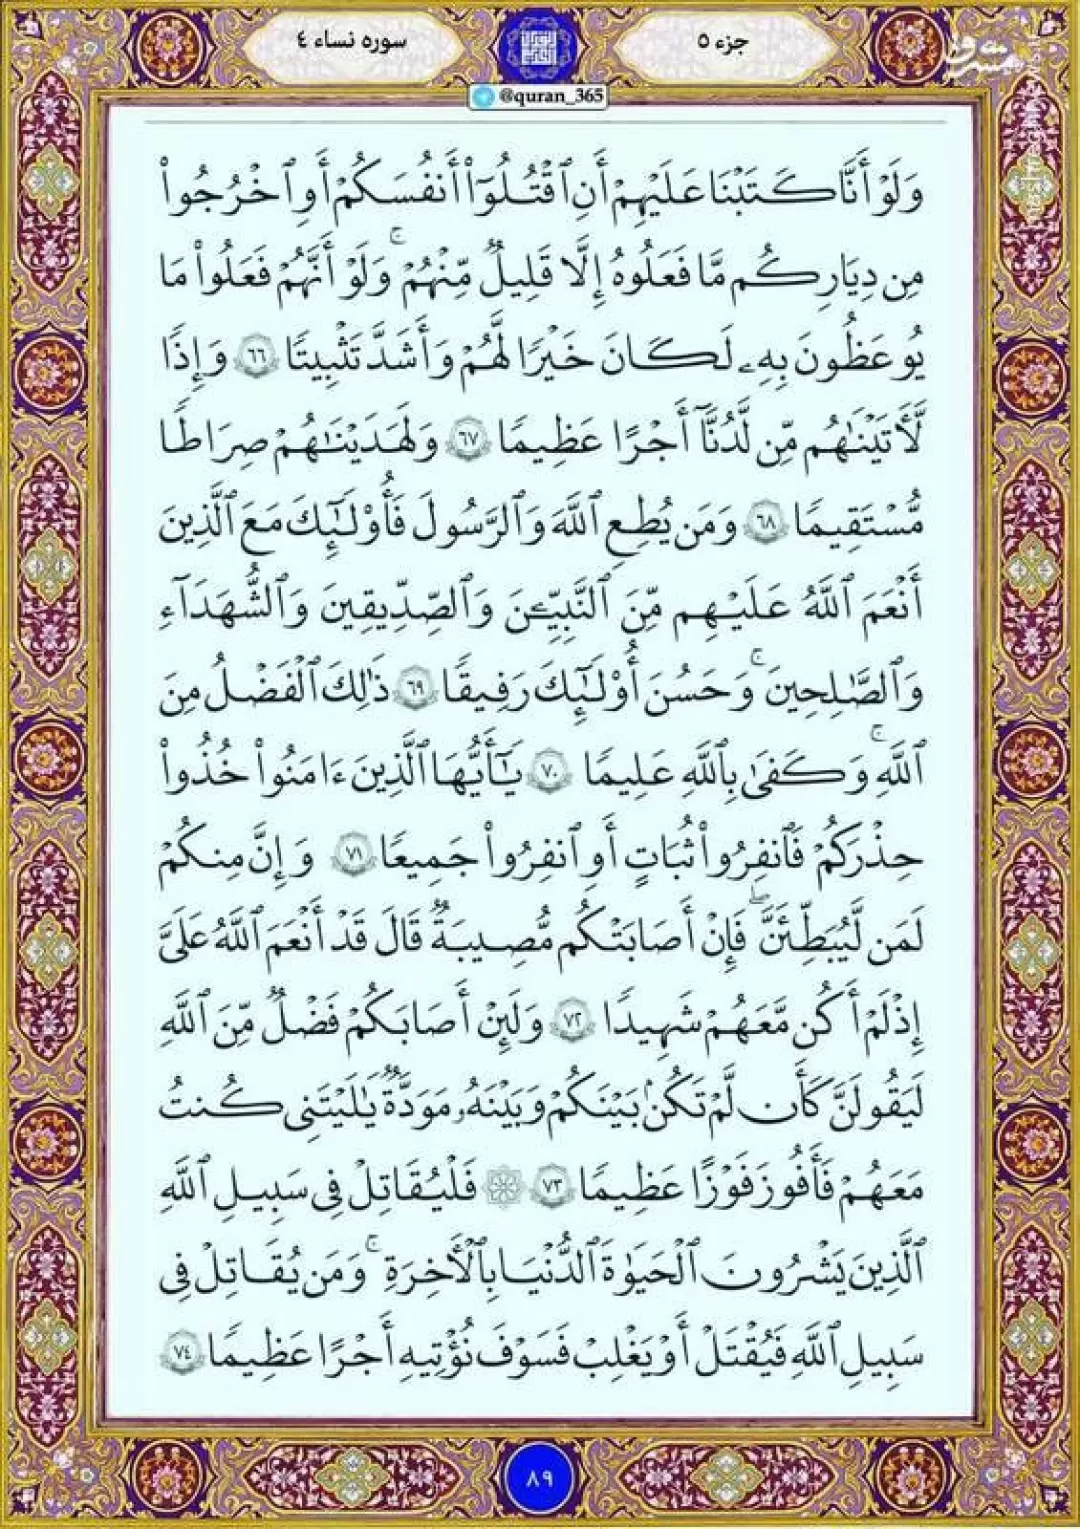 جزء ٥
سوره نساء ٤
@quran_365
مشرق
mashreghnews
وَلَوْ أَنَّا كَتَبْنَا عَلَيْهِمْ أَنِ ٱقْتُلُوٓا۟ أَنفُسَكُمْ أَوِ ٱخْرُجُوا۟
مِن دِيَٰرِكُم مَّا فَعَلُوهُ إِلَّا قَلِيلٌ مِّنْهُمْ ۚ وَلَوْ أَنَّهُمْ فَعَلُوا۟ مَا
يُوعَظُونَ بِهِۦ لَكَانَ خَيْرًا لَّهُمْ وَأَشَدَّ تَثْبِيتًا ٦٦ وَإِذًا
لَّأٓتَيْنَٰهُم مِّن لَّدُنَّآ أَجْرًا عَظِيمًا ٦٧ وَلَهَدَيْنَٰهُمْ صِرَٰطًا
مُّسْتَقِيمًا ٦٨ وَمَن يُطِعِ ٱللَّهَ وَٱلرَّسُولَ فَأُو۟لَٰٓئِكَ مَعَ ٱلَّذِينَ
أَنْعَمَ ٱللَّهُ عَلَيْهِم مِّنَ ٱلنَّبِيِّـۧنَ وَٱلصِّدِّيقِينَ وَٱلشُّهَدَآءِ
وَٱلصَّٰلِحِينَ ۚ وَحَسُنَ أُو۟لَٰٓئِكَ رَفِيقًا ٦٩ ذَٰلِكَ ٱلْفَضْلُ مِنَ
ٱللَّهِ ۚ وَكَفَىٰ بِٱللَّهِ عَلِيمًا ٧٠ يَٰٓأَيُّهَا ٱلَّذِينَ ءَامَنُوا۟ خُذُوا۟
حِذْرَكُمْ فَٱنفِرُوا۟ ثُبَاتٍ أَوِ ٱنفِرُوا۟ جَمِيعًا ٧١ وَإِنَّ مِنكُمْ
لَمَن لَّيُبَطِّئَنَّ ۖ فَإِنْ أَصَٰبَتْكُم مُّصِيبَةٌ قَالَ قَدْ أَنْعَمَ ٱللَّهُ عَلَىَّ
إِذْ لَمْ أَكُن مَّعَهُمْ شَهِيدًا ٧٢ وَلَئِنْ أَصَٰبَكُمْ فَضْلٌ مِّنَ ٱللَّهِ
لَيَقُولَنَّ كَأَن لَّمْ تَكُنۢ بَيْنَكُمْ وَبَيْنَهُۥ مَوَدَّةٌ يَٰلَيْتَنِى كُنتُ
مَعَهُمْ فَأَفُوزَ فَوْزًا عَظِيمًا ٧٣ ۞ فَلْيُقَٰتِلْ فِى سَبِيلِ ٱللَّهِ
ٱلَّذِينَ يَشْرُونَ ٱلْحَيَوٰةَ ٱلدُّنْيَا بِٱلْأَخِرَةِ ۚ وَمَن يُقَٰتِلْ فِى
سَبِيلِ ٱللَّهِ فَيُقْتَلْ أَوْ يَغْلِبْ فَسَوْفَ نُؤْتِيهِ أَجْرًا عَظِيمًا ٧٤
٨٩